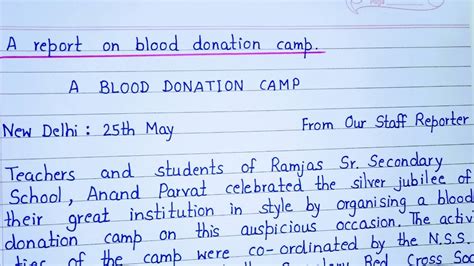 A report on blood donation camp.
A BLOOD DONATION CAMP
New Delhi : 25th May From Our Staff Reporter
Teachers and students of Ramjas Sr. Secondary
School, Anand Parvat celebrated the silver jubilee of
their great institution in style by organising a blood
donation camp on this auspicious occasion. The activ
ties of the camp were co-ordinated by the N.S.S.
Red Cross